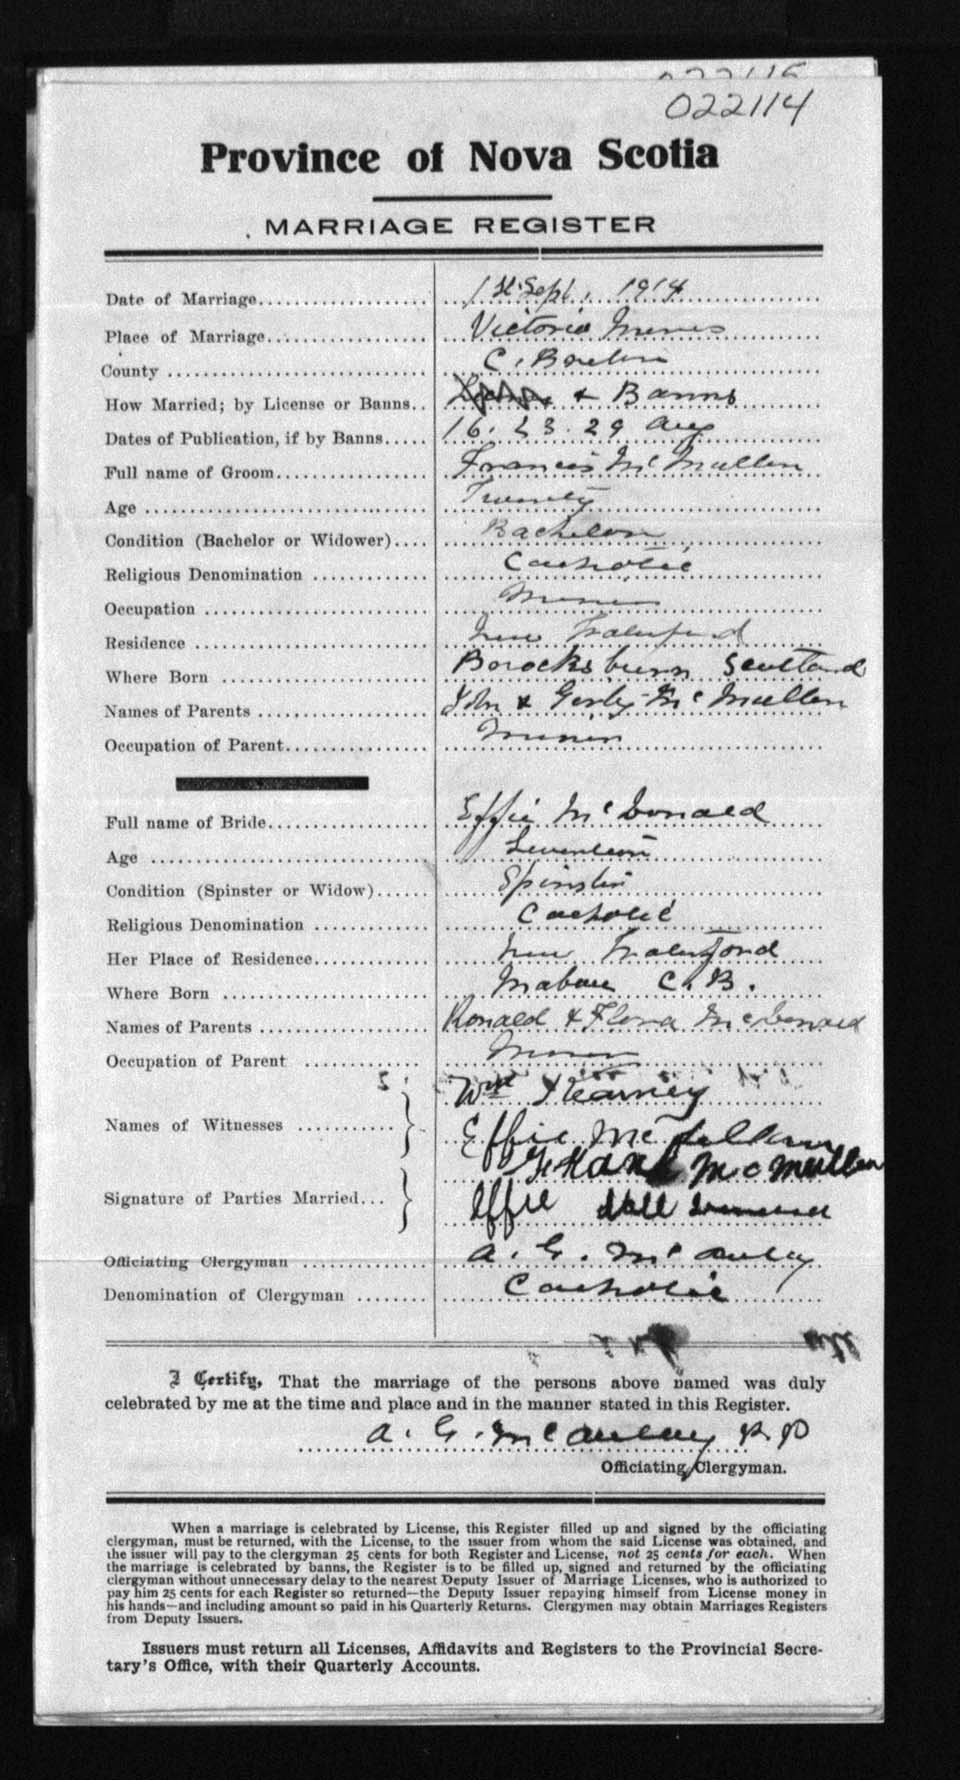 022114
Province of Nova Scotia
MARRIAGE REGISTER
Date of Marriage 1st Sept, 1914
Place of Marriage Victoria Mines
County C. Breton
How Married; by License or Banns & Banns
Dates of Publication, if by Banns 16. 23. 29 Aug
Full name of Groom Francis Mc Mullen
Age Twenty
Condition (Bachelor or Widower) Bachelor
Religious Denomination Catholic
Occupation Miner
Residence New Waterford
Where Born Scotland
Names of Parents John & Mc Mullen
Occupation of Parent Miner
Full name of Bride Effie Mc Donald
Age Seventeen
Condition (Spinster or Widow) Spinster
Religious Denomination Catholic
Her Place of Residence New Waterford
Where Born Mabou C.B.
Names of Parents Ronald & Flora McDonald
Occupation of Parent Miner
Wm Kearney
Names of Witnesses
Effie Mc
Frank McMullen
Signature of Parties Married
Effie
Officiating Clergyman A. G. McAulay
Denomination of Clergyman Catholic
I Certify, That the marriage of the persons above named was duly
celebrated by me at the time and place and in the manner stated in this Register.
A. G. McAulay P.P
Officiating Clergyman.
When a marriage is celebrated by License, this Register filled up and signed by the officiating
clergyman, must be returned, with the License, to the issuer from whom the said License was obtained, and
the issuer will pay to the clergyman 25 cents for both Register and License, not 25 cents for each. When
the marriage is celebrated by banns, the Register is to be filled up, signed and returned by the officiating
clergyman without unnecessary delay to the nearest Deputy Issuer of Marriage Licenses, who is authorized to
pay him 25 cents for each Register so returned—the Deputy Issuer repaying himself from License money in
his hands—and including amount so paid in his Quarterly Returns. Clergymen may obtain Marriages Registers
from Deputy Issuers.
Issuers must return all Licenses, Affidavits and Registers to the Provincial Secre-
tary's Office, with their Quarterly Accounts.